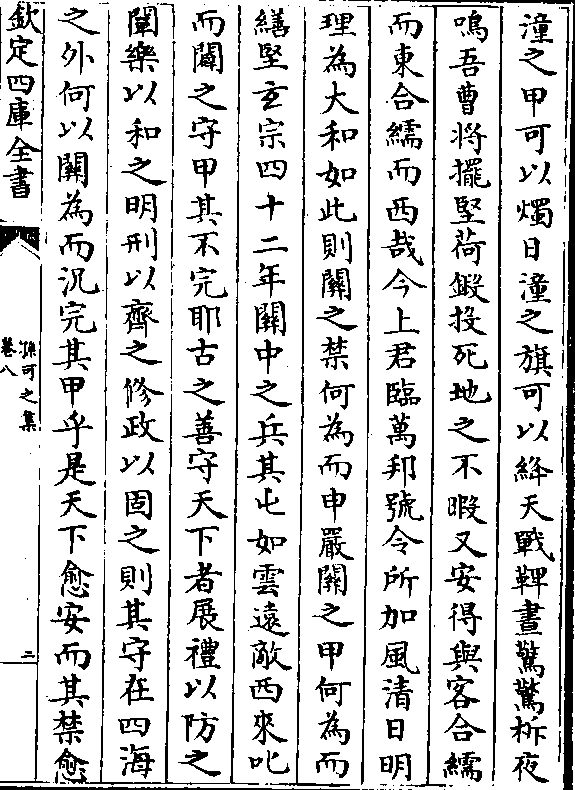 潼之甲可以燭日潼之旗可以絳天戰鞞晝驚驚柝夜
鳴吾曹將擺堅荷鍛投死地之不暇又安得與客合繻
而東合繻而西哉今上君臨萬邦號令所加風清日明
理為大和如此則關之禁何為而申嚴關之甲何為而
繕堅玄宗四十二年關中之兵其屯如雲遠敵西來叱
而闢之守甲其不完耶古之善守天下者展禮以防之
闡樂以和之明刑以齊之修政以固之則其守在四海
之外何以關為而況完其甲乎是天下愈安而其禁愈
欽定四庫全書
孫可之集
卷八
二